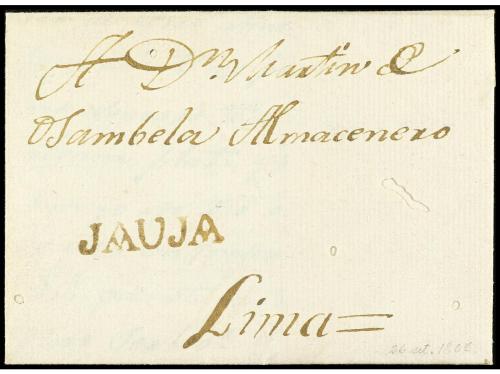 A Dn. Martin de
Osambela Almacenero
JAUJA
Lima=
26 set. 1808